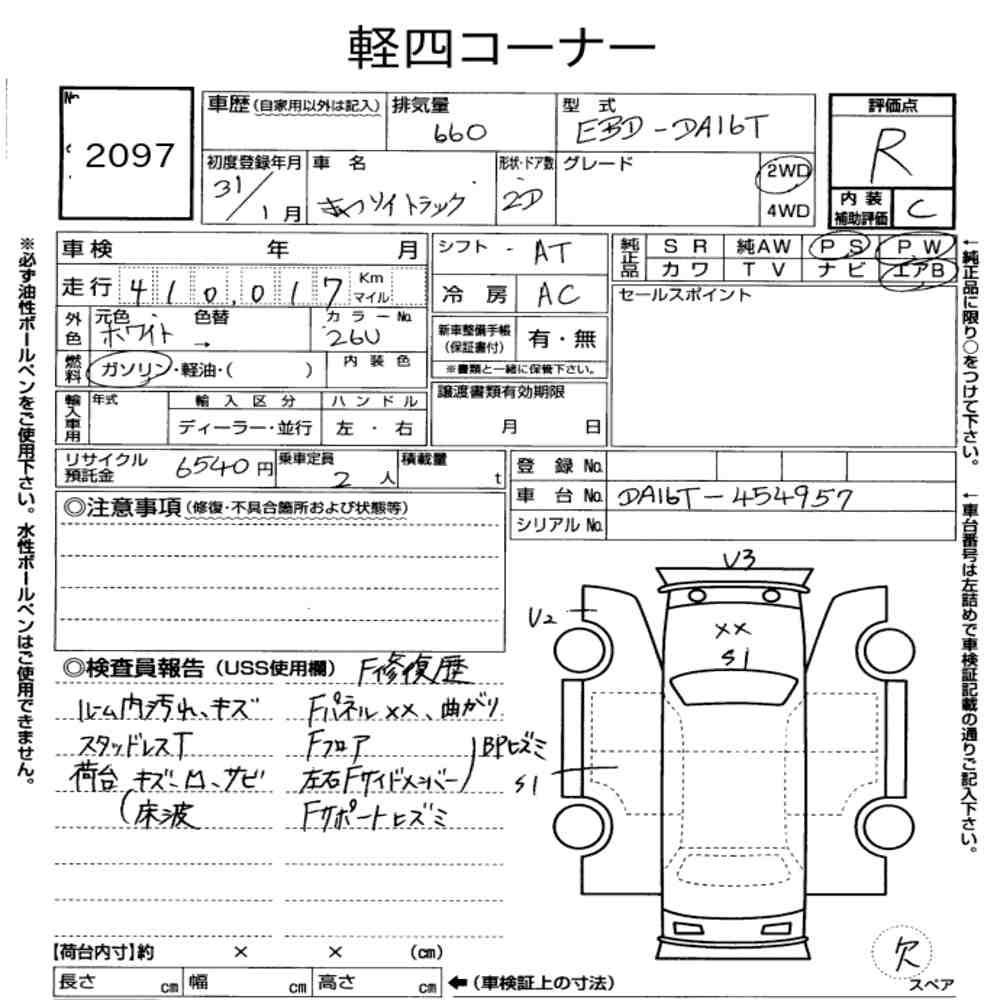 軽四コーナー
№
2097
車歴(自家用以外は記入)
排気量
660
型 式
EBD-DA16T
評価点
R
初度登録年月
31/1月
車 名
形状・ドア数
2D
グレード
2WD
4WD
内装補助評価
C
車検 年 月
シフト
AT
純正品
SR 純AW PS PW
カワ TV ナビ エアB
走行 410,017 Km マイル
冷房
AC
セールスポイント
外色
元色 色替
ホワイト →
カラーNo.
26U
新車整備手帳
(保証書付)
有・無
※書類と一緒に保管下さい。
燃料
ガソリン・軽油・( )
内装色
輸入車用
年式
輸入区分
ディーラー・並行
ハンドル
左・右
譲渡書類有効期限
月 日
リサイクル預託金
6540円
乗車定員
2人
積載量
t
登録 No.
車台 No.
DA16T-454957
シリアル No.
◎注意事項(修復・不具合箇所および状態等)
◎検査員報告(USS使用欄)
F修復歴
ルーム内汚れ、キズ
Fパネル××、曲がり
スタッドレスT
Fフロア
BPヒズミ
荷台 キズ、凹、サビ
左右Fサイドメンバー
(床波
Fサポートヒズミ
V3
U2
××
S1
S1
【荷台内寸】約 × × (cm)
長さ cm 幅 cm 高さ cm
←(車検証上の寸法)
欠
スペア
※必ず油性ボールペンをご使用下さい。水性ボールペンはご使用できません。
←純正品に限り○をつけて下さい。
←車台番号は左詰めで車検証記載の通りご記入下さい。